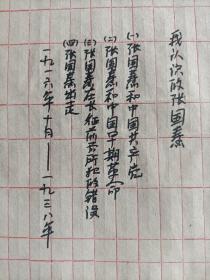 我认识的张国焘
(一)张国焘和中国共产党
(二)张国焘和中国早期革命
(三)张国焘在长征前后所犯的错误
(四)张国焘出走
一九一六年十月——一九三八年